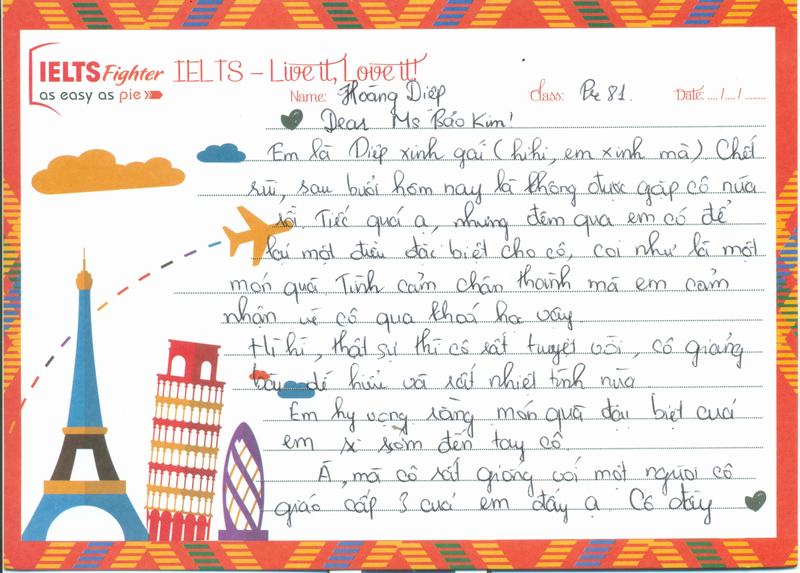 IELTS Fighter IELTS – Live it, Love it!
as easy as pie
Name: Hoàng Diệp Class: Pre 81. Date: .../.../......
Dear Ms Bảo Kim!
Em là Diệp xinh gái (hihi, em xinh mà) Chết
rùi, sau buổi hôm nay là không được gặp cô nữa
rồi. Tiếc quá ạ, nhưng đêm qua em có để
lại một điều đặc biệt cho cô, coi như là một
món quà. Tình cảm chân thành mà em cảm
nhận về cô qua khoá học vậy
Hihi, thật sự thì cô rất tuyệt vời, cô giảng
bài dễ hiểu và rất nhiệt tình nữa.
Em hy vọng rằng món quà đặc biệt của
em sẽ sớm đến tay cô.
À, mà cô rất giống với một người cô
giáo cấp 3 của em đấy ạ. Cô đấy